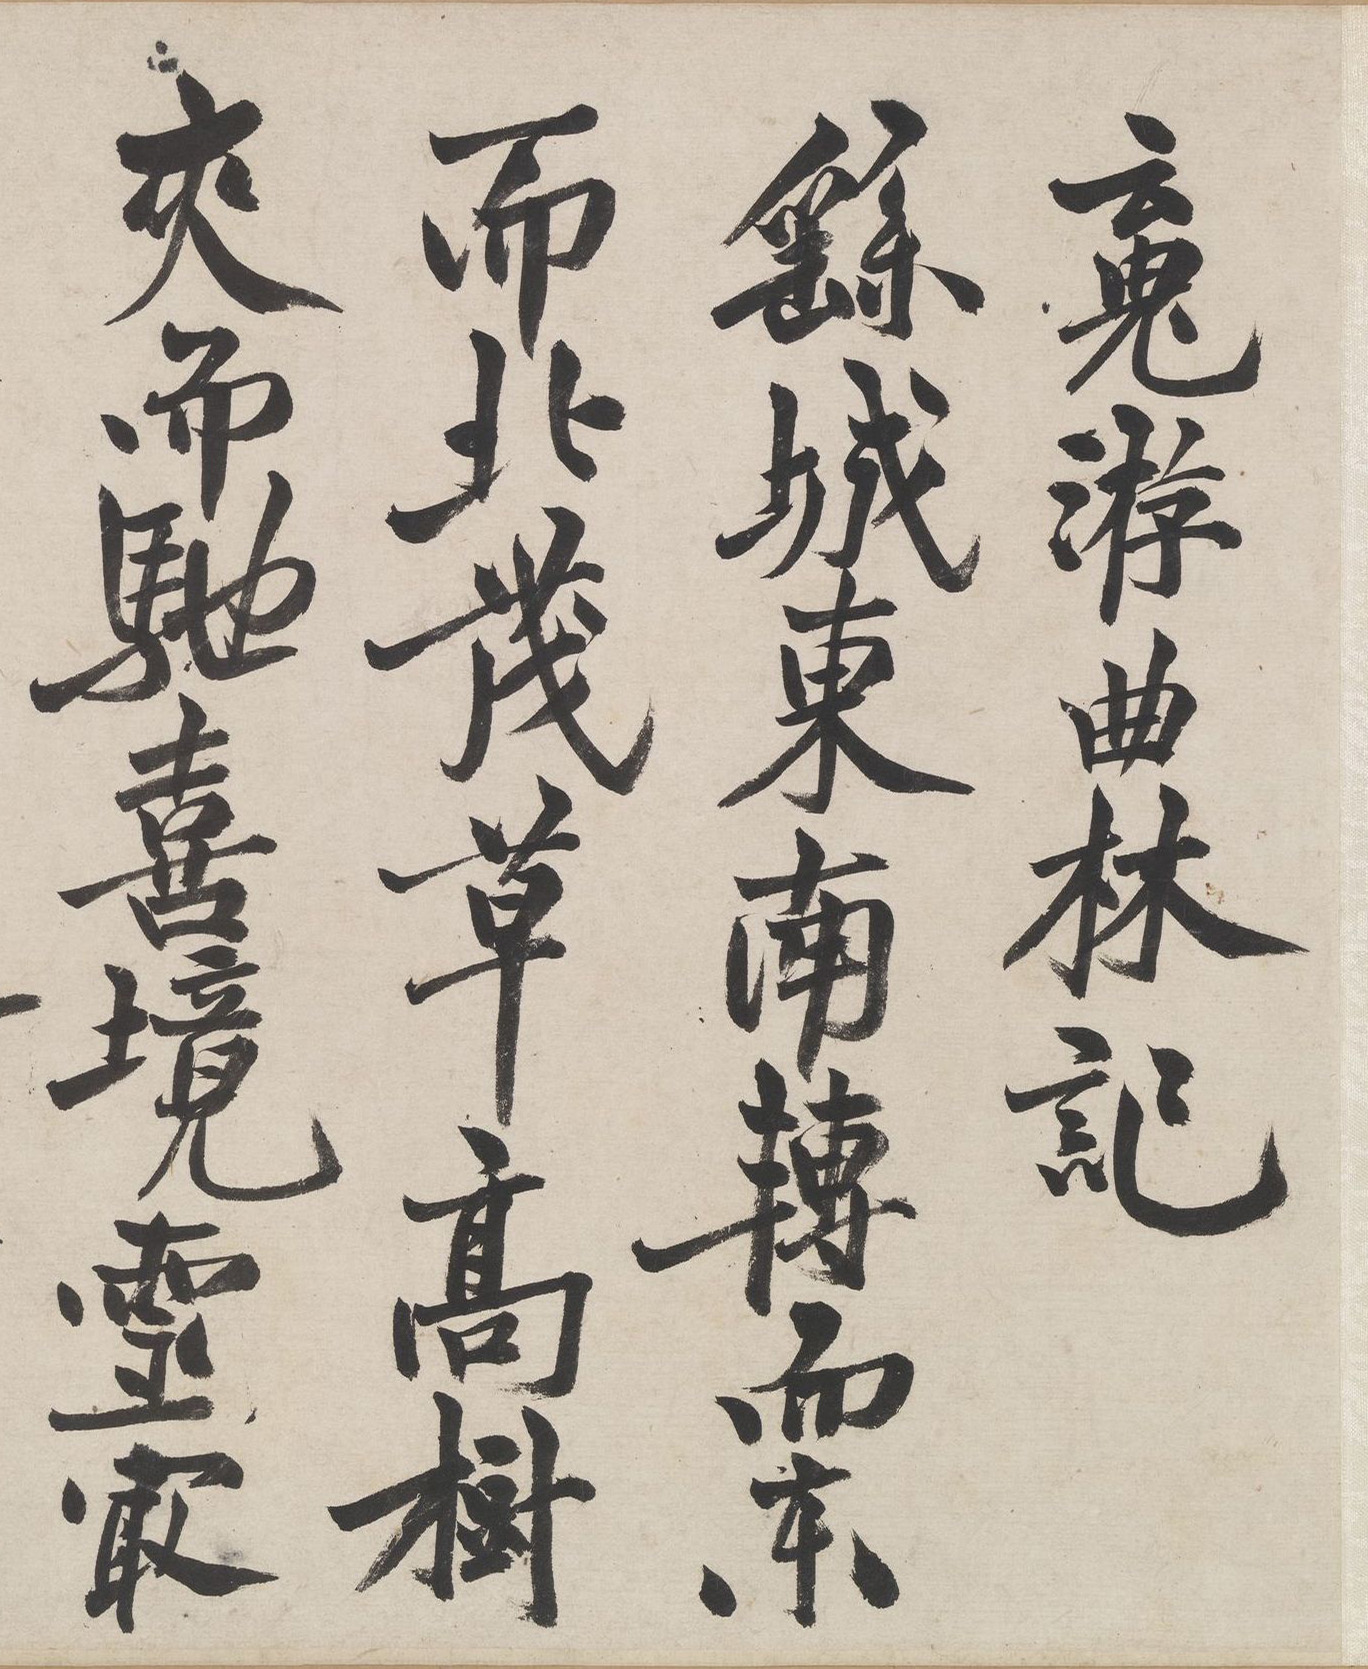 䰟游曲林記
繇城東南轉而東
而北茂草高樹
夾而馳喜境靈㝡